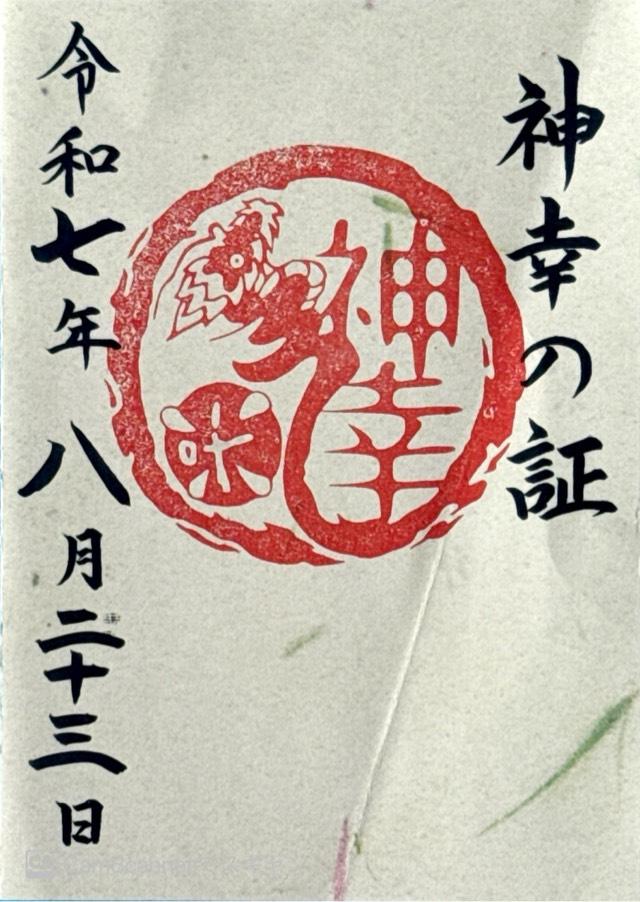 神幸の証
神幸
叶
令和七年八月二十三日